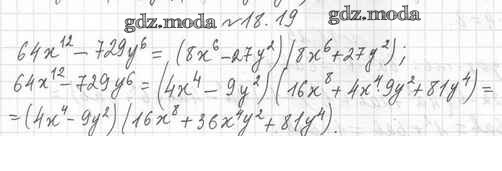 gdz.moda №18.19 gdz.moda
64x¹² - 729y⁶ = (8x⁶ - 27y²)(8x⁶ + 27y²);
64x¹² - 729y⁶ = (4x⁴ - 9y²)(16x⁸ + 4x⁴·9y² + 81y⁴) =
= (4x⁴ - 9y²)(16x⁸ + 36x⁴y² + 81y⁴).